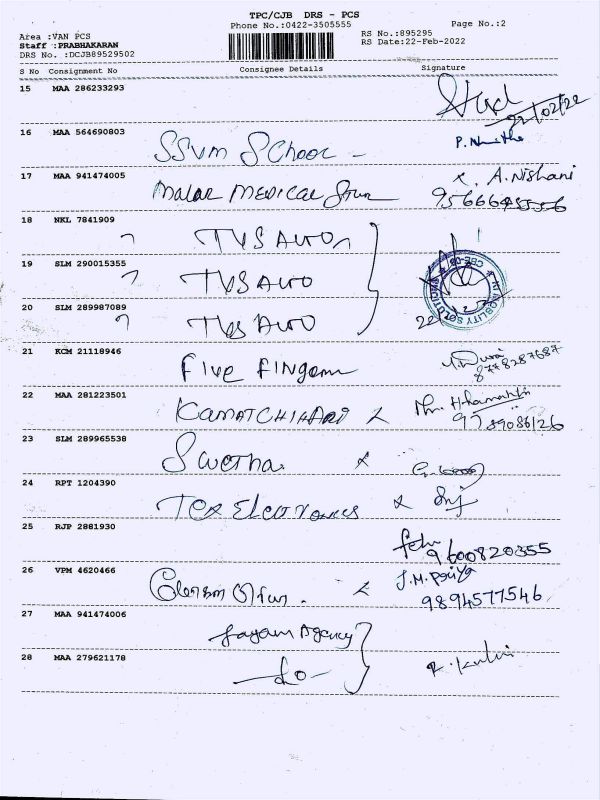 TPC/CJB DRS - PCS
Phone No.:0422-3505555
Page No.:2
Area :VAN PCS
Staff :PRABHAKARAN
DRS No. :DCJB89529502
RS No.:895295
RS Date:22-Feb-2022
S No Consignment No Consignee Details Signature
15 MAA 286233293
22/02/22
16 MAA 564690803
SSVM School -
P. Nivetha
17 MAA 941474005
Malar Medical Store
x. A. Nishani
18 NKL 7841909
TVS Auto
19 SLM 290015355
TVS Auto
20 SLM 289987089
TVS Auto
21 KCM 21118946
Five Fingers
8778287687
22 MAA 281223501
KAMATCHI
9789086126
23 SLM 289965538
Swetha x
24 RPT 1204390
Tex Electronics x
25 RJP 2881930
9600820355
26 VPM 4620466
J.M. Priya
9894577546
27 MAA 941474006
Jayam Agency
28 MAA 279621178
- do -